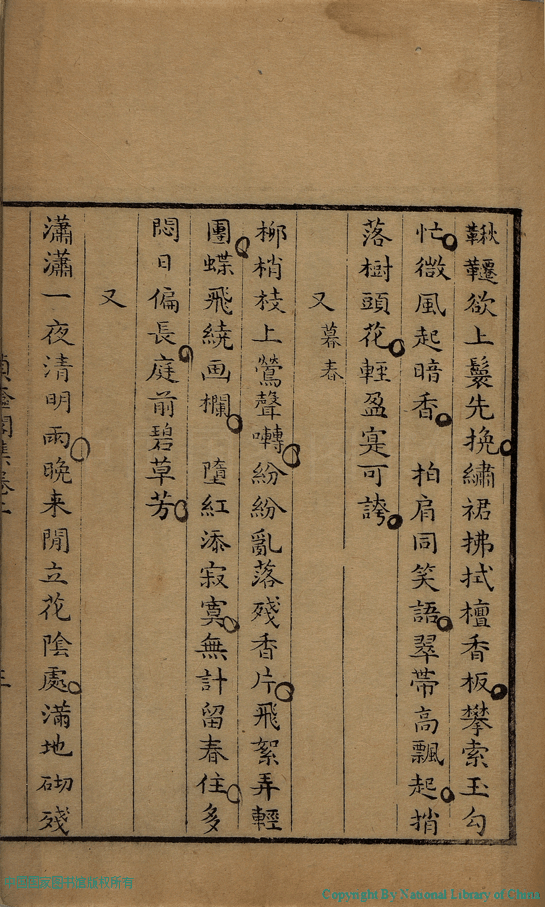 鞦韆欲上鬟先挽繡裙拂拭檀香板攀索玉勾
忙微風起暗香　拍肩同笑語翠帶高飄起捎
落樹頭花輕盈寔可誇
又暮春
柳梢枝上鶯聲囀紛紛亂落殘香片飛絮弄輕
團蝶飛繞画欄　墮紅添寂寞無計留春住多
悶日偏長庭前碧草芳
又
瀟瀟一夜清明雨晚来閒立花陰處滿地砌殘
閣集卷上
三
Copyright By National Library of China